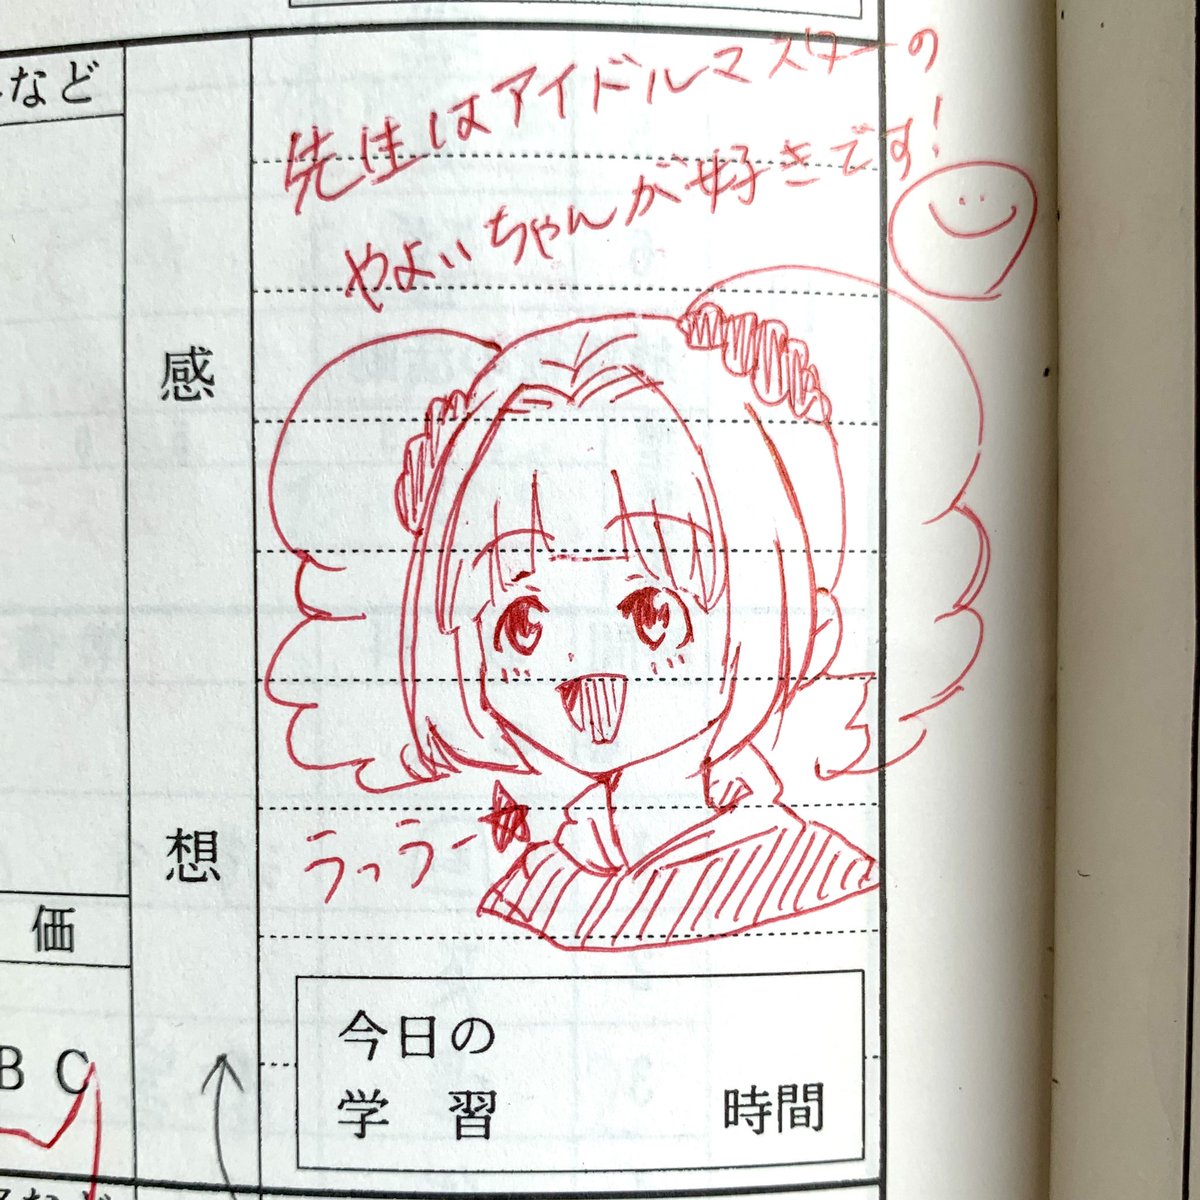 など
先生はアイドルマスターの
やよいちゃんが好きです!
感想
うっうー
価
B C
今日の
学 習 時間
など